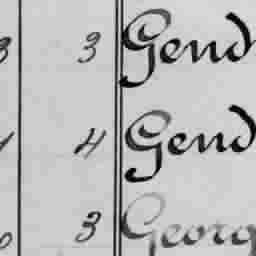 3 Gend
4 Gend
3 Georg